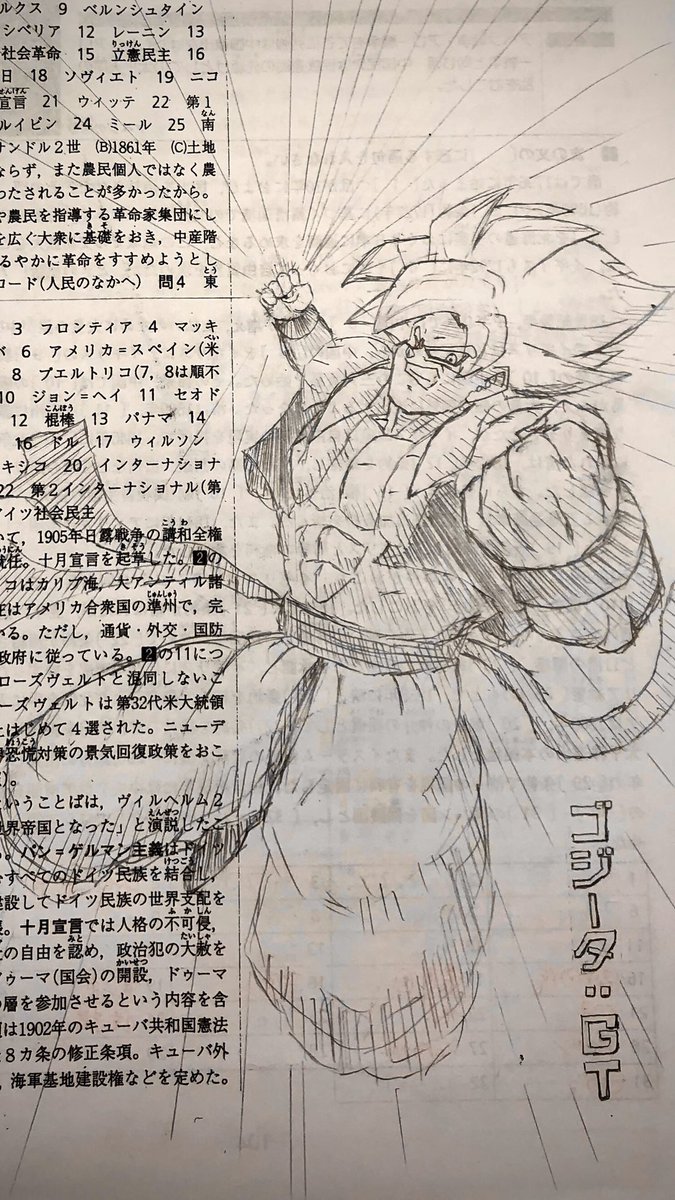 ルクス 9 ベルンシュタイン
シベリア 12 レーニン 13
社会革命 15 立憲民主 16
日 18 ソヴィエト 19 ニコ
宣言 21 ウィッテ 22 第1
ルイビン 24 ミール 25 南
サンドル2世 (B)1861年 (C)土地
ならず，また農民個人ではなく農
ったされることが多かったから。
や農民を指導する革命家集団にし
を広く大衆に基礎をおき，中産階
るやかに革命をすすめようとし
ロード(人民のなかへ) 問4 東
3 フロンティア 4 マッキ
バ 6 アメリカ＝スペイン(米
8 プエルトリコ(7，8は順不
10 ジョン＝ヘイ 11 セオド
12 棍棒 13 パナマ 14
16 ドル 17 ウィルソン
キシコ 20 インターナショナ
22 第2インターナショナル(第
ドイツ社会民主
いて，1905年日露戦争の講和全権
就任。十月宣言を起草した。2の
コはカリブ海，大アンティル諸
在はアメリカ合衆国の準州で，完
いる。ただし，通貨・外交・国防
政府に従っている。2の11につ
ローズヴェルトと混同しないこ
ーズヴェルトは第32代米大統領
とはじめて4選された。ニューデ
恐慌対策の景気回復政策をおこ
。
ということばは，ヴィルヘルム2
世界帝国となった」と演説したこ
。パン＝ゲルマン主義はドイツ
すべてのドイツ民族を結合し，
建設してドイツ民族の世界支配を
。十月宣言では人格の不可侵，
の自由を認め，政治犯の大赦を
ドゥーマ(国会)の開設，ドゥーマ
の層を参加させるという内容を含
は1902年のキューバ共和国憲法
8カ条の修正条項。キューバ外
，海軍基地建設権などを定めた。
ゴジータ:GT